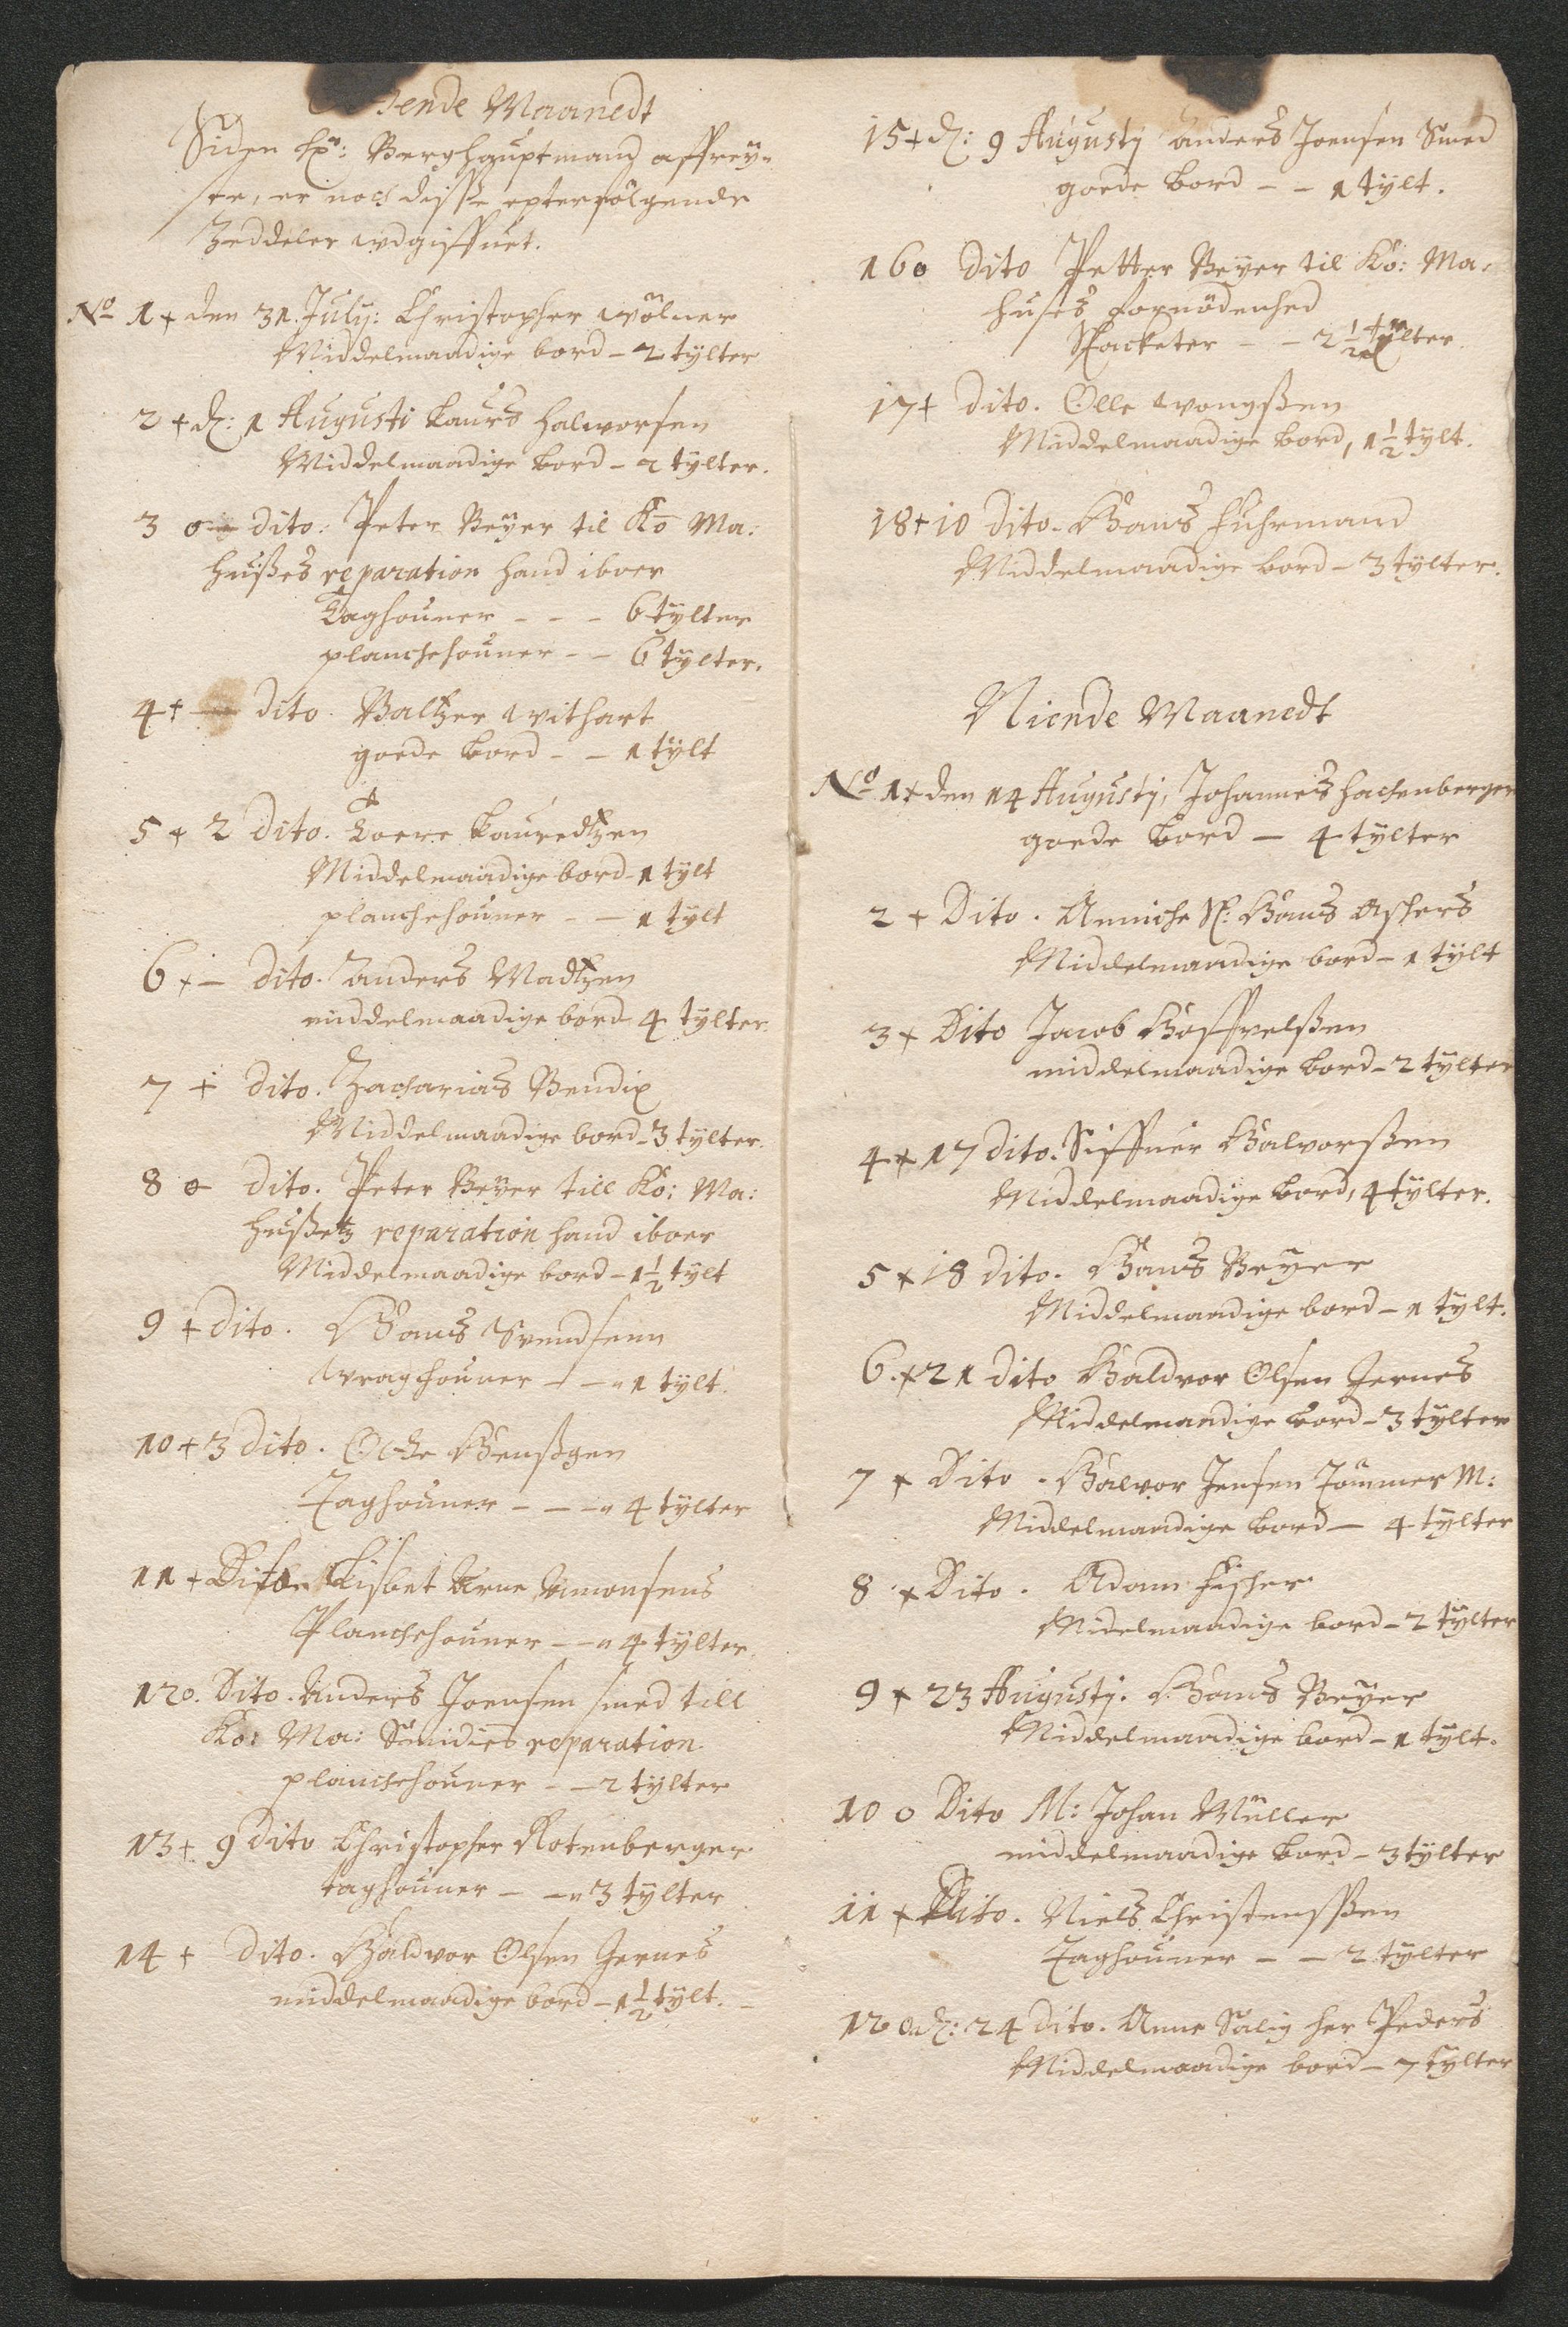 ende Maanedt
Siden Hr: Berghauptmand affrey-
ste, er noch disse epterfölgende
Zeddeler udgiffuet.
No 1 + den 31. July: Christopher Wölner
Middelmaadige bord - 2 tylter
2 + d: 1 Augusti Laurs Halworsen
Middelmaadige bord - 2 tylter.
3 o - dito: Peter Beyer til Ko Ma:
hußes reparation hand iboer
Taghouner - - - 6 tylter
planchehouner - - 6 tylter.
4 + - dito Baltzer Withart
goede bord - - 1 tylt
5 + 2 dito. Toere Lauredtzen
Middelmaadige bord - 1 tylt
planchehouner - - 1 tylt
6 + - dito. Anders Madtzen
middelmaadige bord 4 tylter.
7 + dito. Zacharias Bendix
Middelmaadige bord - 3 tylter.
8 o dito. Peter Beyer till Ko: Ma:
hußetz reparation hand iboer
Middelmaadige bord - 1 1/2 tylt
9 + dito. Hans Svendsenn
Wraghouner - - 1 tylt.
10 + 3 dito. Ocke
Taghouner - - - 4 tylter
11 + Dito Lisbet Arne Amonsens
Planchehouner - - 4 tylter.
12 o. Dito. Anders Joensen smed till
Ko: Ma: Smidies reparation
planchehouner - - 2 tylter
13 + 9 dito Christopher Rotenberger
taghouner - - 3 tylter
14 + dito. Haldvor Olsen Jernes
middelmaadige bord - 1 1/2 tylt. -
15 + d: 9 Augustj Anders Joensen Smed
goede bord - - 1 tylt.
16 o dito Petter Beyer til Ko: Ma.
huses fornödenhed
Stacketer - - 2 1/2 tylter
17 + dito. Olle
Middelmaadige bord, 1 1/2 tylt.
18 + 10 dito. Hans Fuhrmand
Middelmaadige bord - 3 tylter.
Niende Maanedt
No 1 + den 14 Augustj, Johannes Hachenberger
goede bord - 4 tylter
2 + Dito. Anniche Sl: Hans Aschers
Middelmaadige bord - 1 tylt
3 + Dito Jacob
middelmaadige bord - 2 tylter
4 + 17 dito. Siffuer Halvorßen
Middelmaadige bord, 4 tylter.
5 + 18 dito. Hans Beyer
Middelmaadige bord - 1 tylt.
6. + 21 dito Haldvor Olsen Jernes
Middelmaadige bord - 3 tylter
7 + Dito. Halvor Jensen Tömmer M:
Middelmaadige bord - 4 tylter
8 + Dito. Adam Fischer
Midelmaadige bord - 2 tylter
9 + 23 Augustj. Hans Beyer
Middelmaadige bord - 1 tylt.
10 o Dito M: Johan Müller
middelmaadige bord - 3 tylter
11 + Dito. Niels Christensßen
Taghouner - - 2 tylter
12 o d: 24 dito. Anne Salig her Peders
Middelmaadige bord - 7 tylter